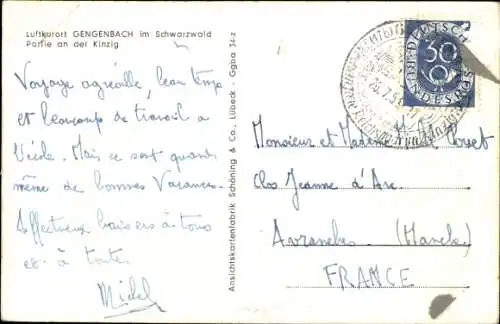 Luftkurort GENGENBACH im Schwarzwald
Partie an der Kinzig
Voyage agréable, beau temps
et beaucoup de travail a
l'école. Mais ce sont quand
même de bonnes Vacances.
Affectueux baisers à tous
et à toute.
Michel
Ansichtskartenfabrik Schöning & Co., Lübeck - Ggba 34-z
30
DEUTSCHE
BUNDESPOST
Monsieur et Madame
Clos Jeanne d'Arc
Avranches (Manche)
FRANCE